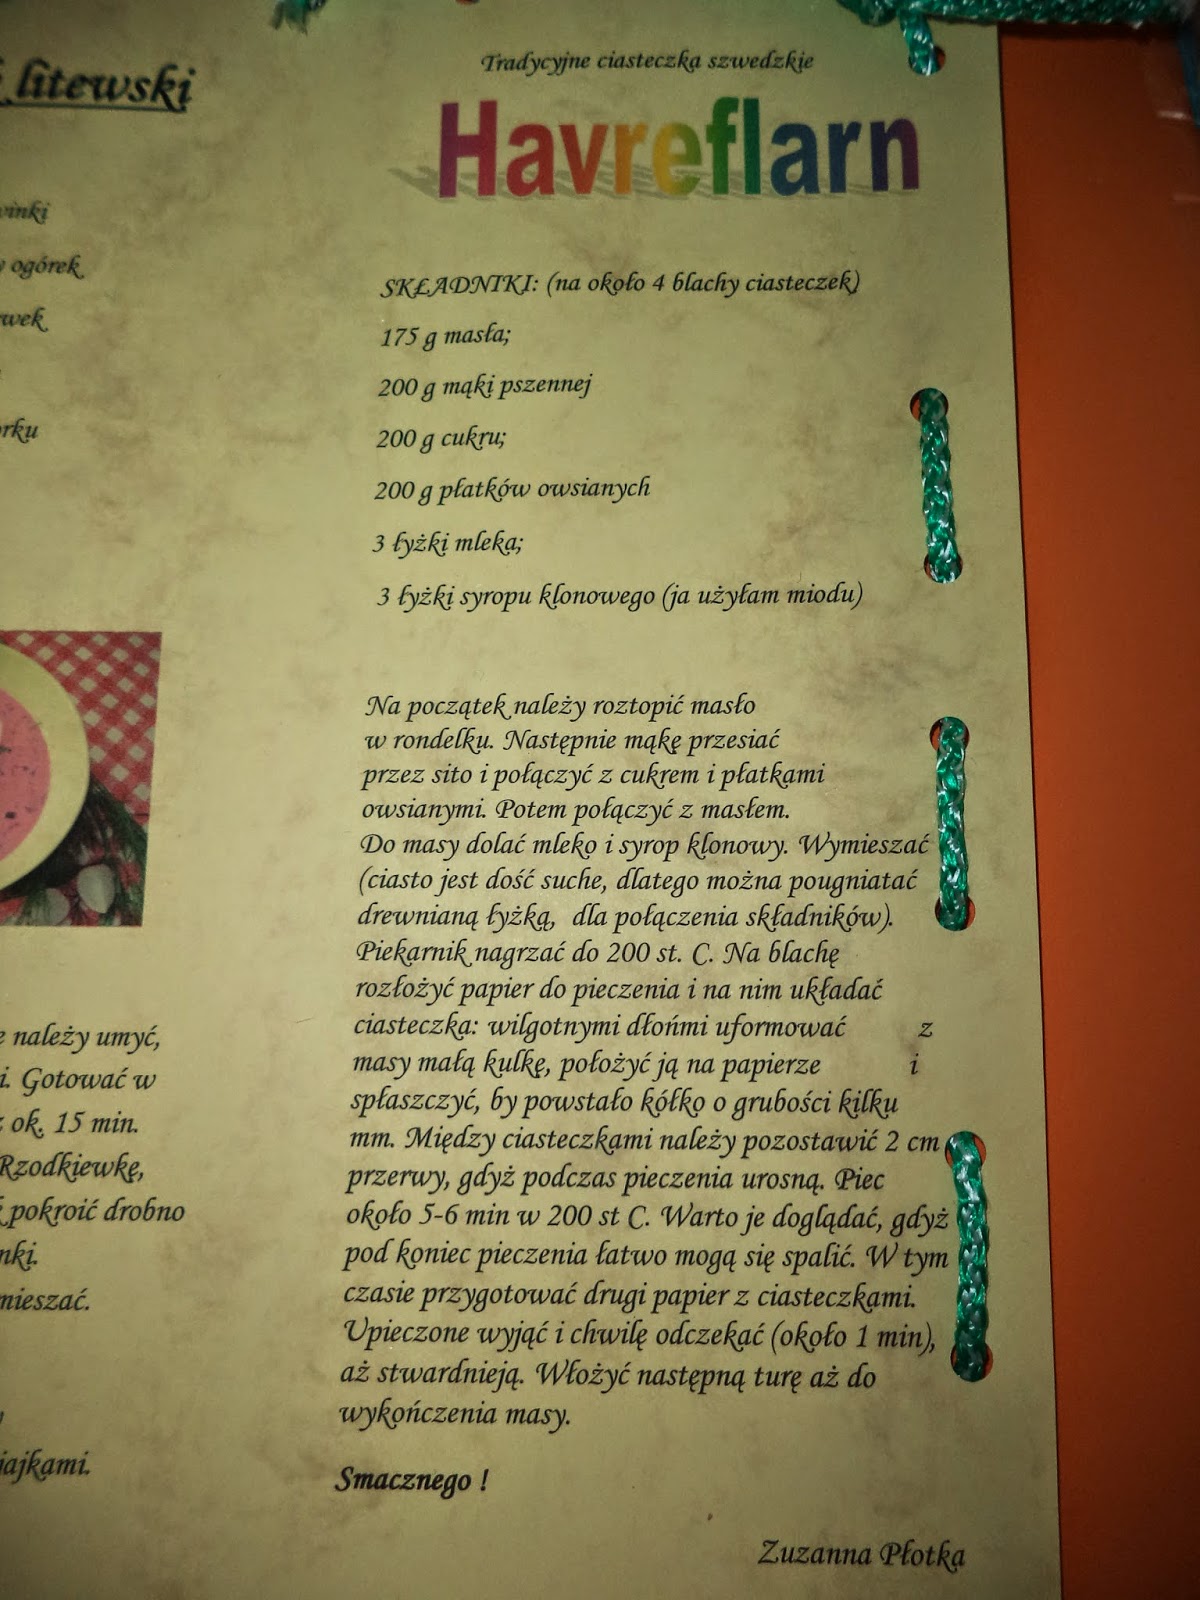 litewski
ogórek
należy umyć,
i. Gotować w
ok. 15 min.
Rzodkiewkę,
pokroić drobno
Tradycyjne ciasteczka szwedzkie
Havreflarn
SKŁADNIKI: (na około 4 blachy ciasteczek)
175 g masła;
200 g mąki pszennej
200 g cukru;
200 g płatków owsianych
3 łyżki mleka;
3 łyżki syropu klonowego (ja użyłam miodu)
Na początek należy roztopić masło
w rondelku. Następnie mąkę przesiać
przez sito i połączyć z cukrem i płatkami
owsianymi. Potem połączyć z masłem.
Do masy dolać mleko i syrop klonowy. Wymieszać
(ciasto jest dość suche, dlatego można pougniatać
drewnianą łyżką, dla połączenia składników).
Piekarnik nagrzać do 200 st. C. Na blachę
rozłożyć papier do pieczenia i na nim układać
ciasteczka: wilgotnymi dłońmi uformować z
masy małą kulkę, położyć ją na papierze i
spłaszczyć, by powstało kółko o grubości kilku
mm. Między ciasteczkami należy pozostawić 2 cm
przerwy, gdyż podczas pieczenia urosną. Piec
około 5-6 min w 200 st C. Warto je doglądać, gdyż
pod koniec pieczenia łatwo mogą się spalić. W tym
czasie przygotować drugi papier z ciasteczkami.
Upieczone wyjąć i chwilę odczekać (około 1 min),
aż stwardnieją. Włożyć następną turę aż do
wykończenia masy.
Smacznego !
Zuzanna Płotka